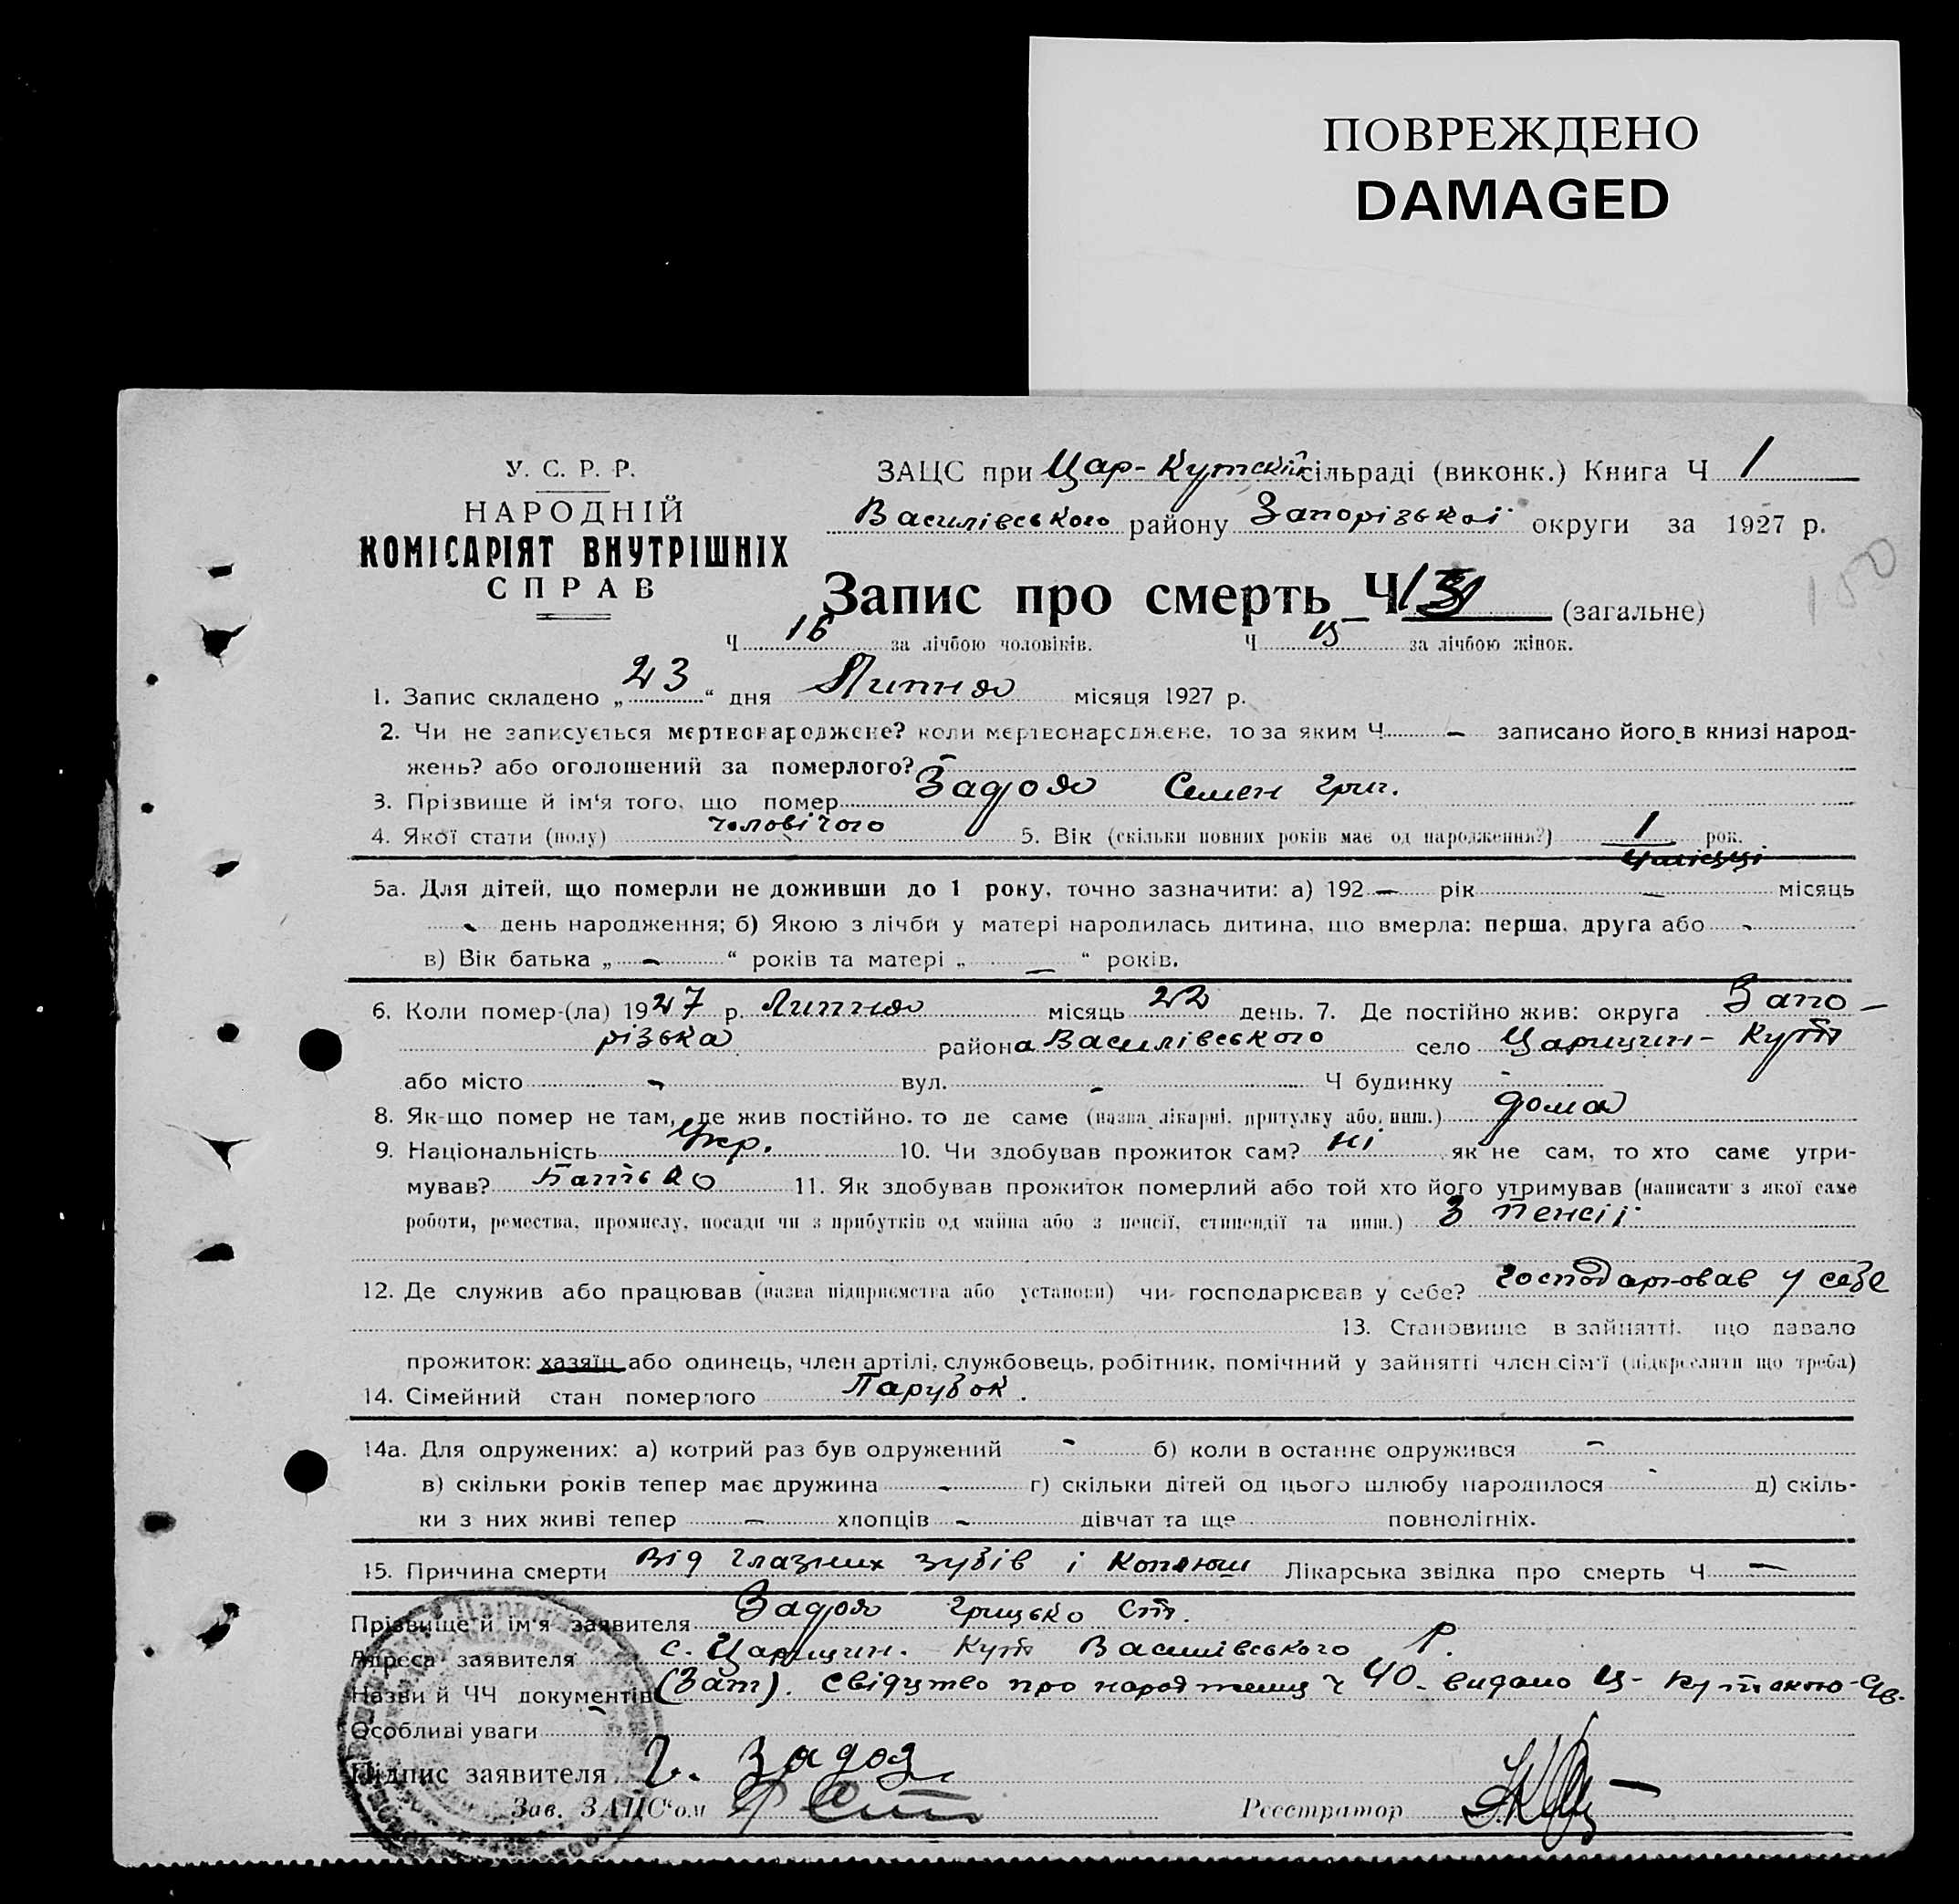 ПОВРЕЖДЕНО
DAMAGED
У. С. Р. Р.
НАРОДНІЙ
КОМІСАРІЯТ ВНУТРІШНІХ
СПРАВ
ЗАЦС при Цар-Кутскій сільраді (виконк.) Книга Ч 1
Василівського району Запорізької округи за 1927 р.
100
Запис про смерть Ч (загальне)
Ч 16 за лічбою чоловіків. Ч за лічбою жінок.
1. Запис складено „23“ дня Липня місяця 1927 р.
2. Чи не записується мертвонароджене? коли мертвонароджене, то за яким Ч — записано його в книзі народ-
жень? або оголошений за померлого? —
3. Прізвище й ім‘я того, що помер Задоя Семен Григ.
4. Якої стати (полу) чоловічого 5. Вік (скільки повних років має од народження?) 1 рок.
4 місяці
5а. Для дітей, що померли не доживши до 1 року, точно зазначити: а) 192 — рік — місяць
- день народження; б) Якою з лічби у матері народилась дитина, що вмерла: перша, друга або -
в) Вік батька „ — “ років та матері „ — “ років.
6. Коли помер-(ла) 1927 р. Липня місяць 22 день. 7. Де постійно жив: округа Запо-
різька района Василівського село Царицин-Кут
або місто - вул. - Ч будинку -
8. Як-що помер не там, де жив постійно, то де саме (назва лікарні, притулку або, инш.) дома
9. Національність Укр. 10. Чи здобував прожиток сам? ні як не сам, то хто саме утри-
мував? Батько 11. Як здобував прожиток померлий або той хто його утримував (написати з якої саме
роботи, ремества, промислу, посади чи з прибутків од майна або з пенсії, стипендії та инш.) З пенсії
12. Де служив або працював (назва підприємства або установи) чи господарював у себе? господарював у себе
13. Становище в зайнятті, що давало
прожиток: хазяїн або одинець, член артілі, службовець, робітник, помічний у зайнятті член сім‘ї (підкреслити що треба)
14. Сімейний стан померлого Парубок.
14а. Для одружених: а) котрий раз був одружений - б) коли в останнє одружився -
в) скільки років тепер має дружина - г) скільки дітей од цього шлюбу народилося - д) скіль-
ки з них живі тепер — хлопців - дівчат та ще повнолітніх.
15. Причина смерти Від глазних зубів і Лікарська звідка про смерть Ч —
Прізвище й ім‘я заявителя Задоя Грицько Ст.
Адреса заявителя с. Царицин. Кут Василівського Р.
Назви й ЧЧ документів (Зап). Свідутво про народження ч 40. видано Ц-
Особливі уваги
Підпис заявителя Г. Задоя
Зав. ЗАЦС‘ом Реєстратор